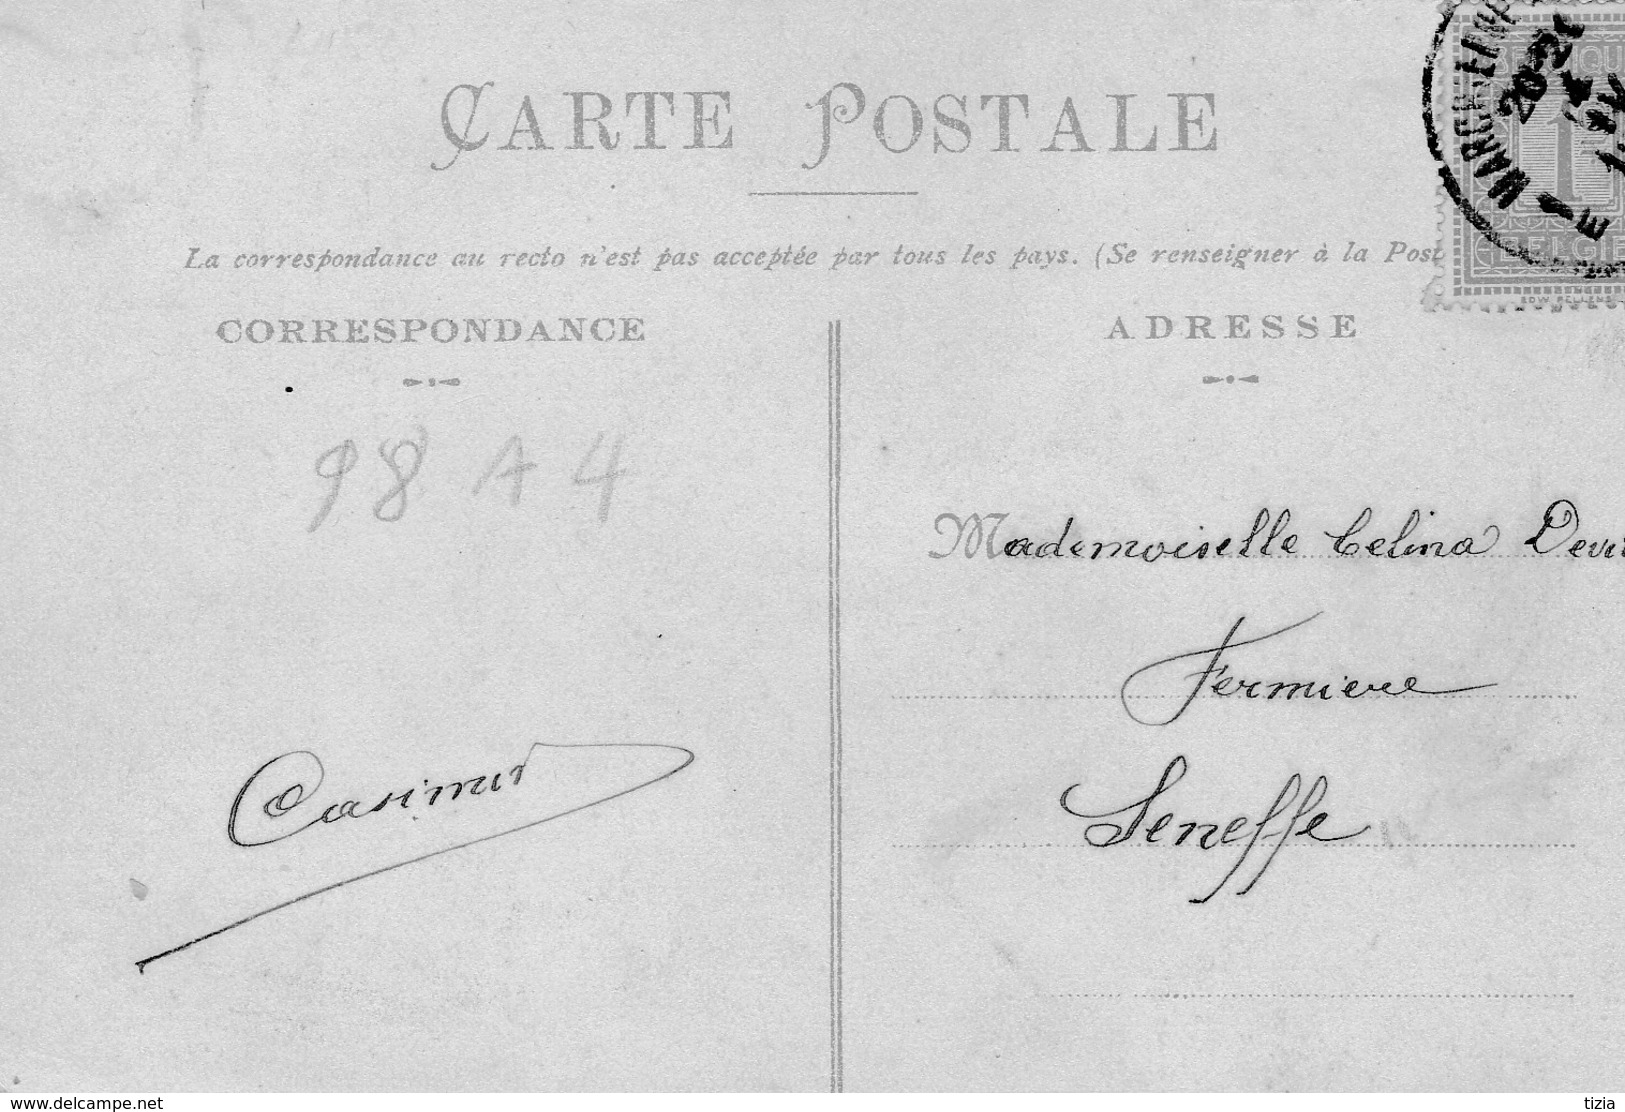 CARTE POSTALE
La correspondance au recto n'est pas acceptée par tous les pays. (Se renseigner à la Post
CORRESPONDANCE
ADRESSE
98 A 4
Mademoiselle Celina
Fermiere
Seneffe
Casimir
20-21
1
BELGIE
www.delcampe.net
tizia